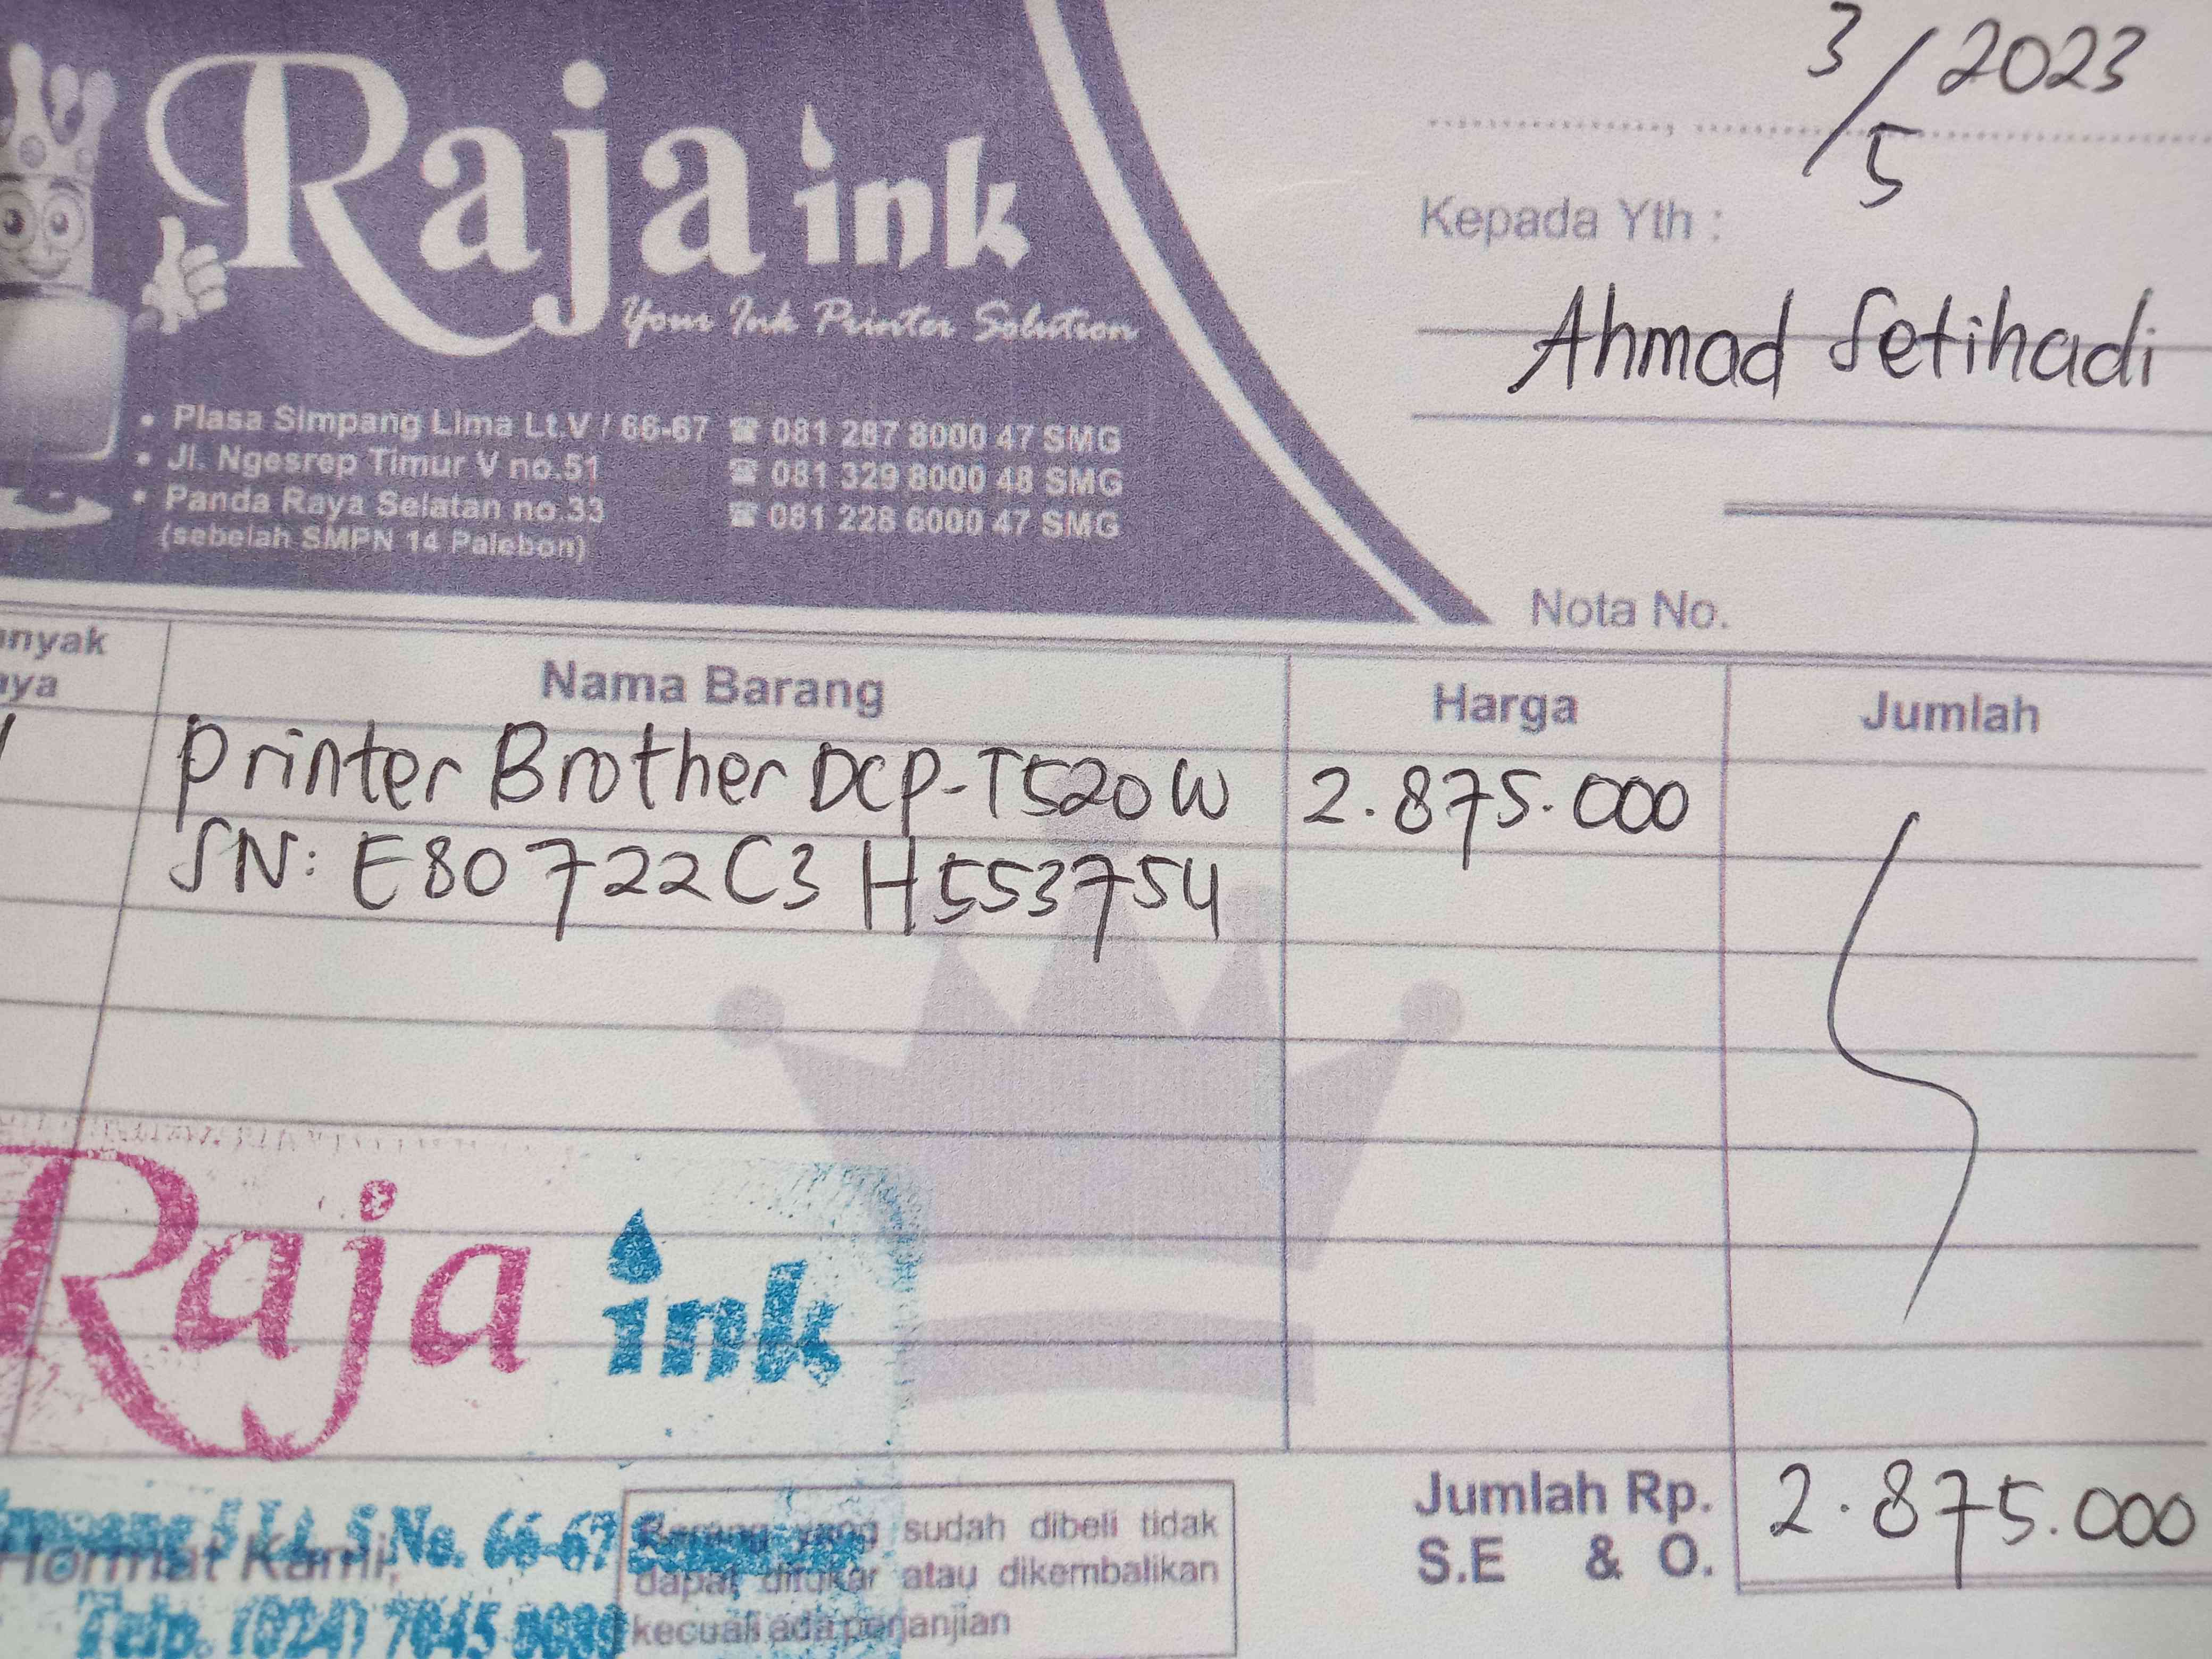 3/5 2023
Raja ink
Your Ink Printer Solution
Kepada Yth :
Ahmad Setihadi
• Plasa Simpang Lima Lt.V / 66-67 ☎ 081 287 8000 47 SMG
• Jl. Ngesrep Timur V no.51 ☎ 081 329 8000 48 SMG
• Panda Raya Selatan no.33 ☎ 081 228 6000 47 SMG
(sebelah SMPN 14 Palebon)
Nota No.
anyak
nya
Nama Barang
Harga
Jumlah
1 Printer Brother DCP-T520W 2.875.000
SN: E80722C3H553754
Raja ink
Lt. 5 No. 66-67
Hormat Kami,
Telp. (024) 7645
Barang yang sudah dibeli tidak
dapat ditukar atau dikembalikan
kecuali ada perjanjian
Jumlah Rp. 2.875.000
S.E & O.